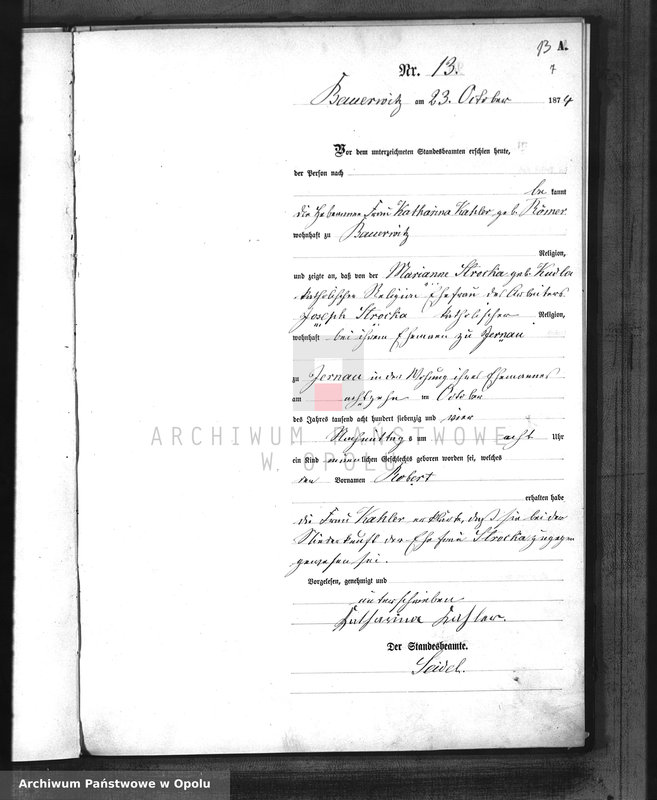 13 A.
7
Nr. 13.
Bauerwitz am 23. October 1874
Vor dem unterzeichneten Standesbeamten erschien heute,
der Person nach
be kannt
die Hebamme Frau Katharina Kahler geb. Römer
wohnhaft zu Bauerwitz
Religion,
und zeigte an, daß von der Marianne Strocka geb. Kudla
katholischer Religion Ehefrau des Arbeiters
Joseph Strocka katholischer Religion,
wohnhaft bei ihrem Ehemann zu Jernau
zu Jernau in der Wohnung ihres Ehemannes
am achtzehn ten October
des Jahres tausend acht hundert siebenzig und vier
Nachmittags um acht Uhr
ein Kind männlichen Geschlechts geboren worden sei, welches
den Vornamen Robert
erhalten habe
die Frau Kahler erklärte, daß sie bei der
Niederkunft der Ehefrau Strocka zugegen
gewesen sei.
Vorgelesen, genehmigt und
unterschrieben
Katharina Kahler.
Der Standesbeamte.
Seidel.
ARCHIWUM PAŃSTWOWE
W OPOLU
Archiwum Państwowe w Opolu